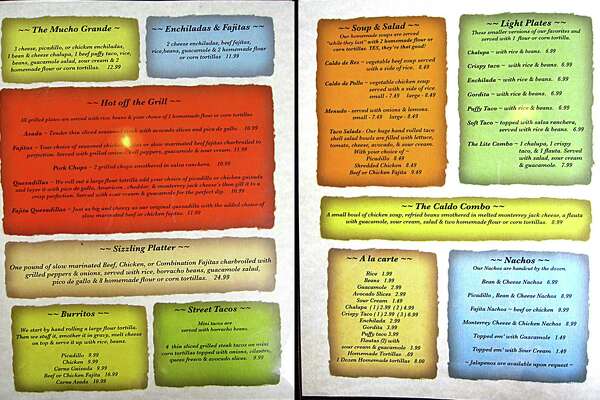 ~~ The Mucho Grande~
3 cheese, picadillo, or chicken enchiladas,
1 bean & cheese chalupa, 1 beef puffy taco, rice,
beans, guacamole salad, sour cream & 2
homemade flour or corn tortillas. 12.99
~~ Enchiladas & Fajitas~~
2 cheese enchiladas, beef fajitas,
rice, beans, guacamole, 2 homemade flour
or corn tortillas 11.99
~~ Hot off the Grill ~~
All grilled plates are served with rice, beans & your choice of 2 homemade flour or corn tortillas
Asada ~ Tender thin sliced seasoned steak with avocado slices and pico de gallo. 10.99
Fajitas ~ Your choice of seasoned chicken or slow marinated beef fajitas charbroiled to
perfection. Served with grilled onions, bell peppers, guacamole & sour cream. 11.99
Pork Chops ~ 2 grilled chops smothered in salsa ranchera. 10.99
Quesadillas ~ We roll out a large flour tortilla add your choice of picadillo or chicken guisada
and layer it with pico de gallo, American, cheddar, & monterey jack cheese's then grill it to a
crisp perfection. Served with sour cream & guacamole for the perfect dip. 10.99
Fajita Quesadillas ~ Just as big and cheesy as our original quesadilla with the added choice of
slow marinated beef or chicken fajitas. 11.99
~~ Sizzling Platter ~~
One pound of slow marinated Beef, Chicken, or Combination Fajitas charbroiled with
grilled peppers & onions, served with rice, borracho beans, guacamole salad,
pico de gallo & 8 homemade flour or corn tortillas. 24.99
~~ Burritos ~~
We start by hand rolling a large flour tortilla.
Then we stuff it, smother it in gravy, melt cheese
on top & serve it up with rice, beans.
Picadillo 9.99
Chicken 9.99
Carne Guisada 9.99
Beef or Chicken Fajita 10.99
Carne Asada 10.99
~~ Street Tacos ~~
Mini tacos are
served with borracho beans.
4 thin sliced grilled steak tacos on mini
corn tortillas topped with onions, cilantro,
queso fresco & avocado slices. 9.99
~~ Soup & Salad ~~
Our homemade soups are served
"while they last" with 2 homemade flour
or corn tortillas. YES, they're that good!
Caldo de Res ~ vegetable beef soup served
with a side of rice. 8.49
Caldo de Pollo ~ vegetable chicken soup
served with a side of rice.
small - 7.49 large - 8.49
Menudo ~ served with onions & lemons.
small - 7.49 large - 8.49
Taco Salads ~ Our huge hand rolled taco
shell salad bowls are filled with lettuce,
tomato, cheese, avocado, & sour cream.
With your choice of ~
Picadillo 8.49
Shredded Chicken 8.49
Beef or Chicken Fajita 9.49
~~ Light Plates ~~
These smaller versions of our favorites and
served with 1 flour or corn tortilla.
Chalupa ~ with rice & beans. 6.99
Crispy taco ~ with rice & beans. 6.99
Enchilada ~ with rice & beans. 6.99
Gordita ~ with rice & beans. 6.99
Puffy Taco ~ with rice & beans. 6.99
Soft Taco ~ topped with salsa ranchera,
served with rice & beans. 6.99
The Lite Combo ~ 1 chalupa, 1 crispy
taco, & 1 flauta. Served
with salad, sour cream &
guacamole. 7.99
~~ The Caldo Combo ~~
A small bowl of chicken soup, refried beans smothered in melted monterrey jack cheese, a flauta
with guacamole, sour cream, salad & two homemade flour or corn tortillas. 8.99
~~ A la carte ~~
Rice 1.99
Beans 1.99
Guacamole 2.99
Avocado Slices 2.99
Sour Cream 1.49
Chalupa (1) 2.99 (2) 4.99
Crispy Taco (1) 2.99 (3) 6.99
Enchilada 2.99
Gordita 3.99
Puffy taco 3.99
Flautas (3) with
sour cream & guacamole 5.99
Homemade Tortillas .69
1 Dozen Homemade tortillas 8.00
~~ Nachos ~~
Our Nachos are handcut by the dozen.
Bean & Cheese Nachos 6.99
Picadillo, Bean & Cheese Nachos 8.99
Fajita Nachos ~ beef or chicken 9.99
Monterrey Cheese & Chicken Nachos 8.99
Topped em' with Guacamole 2.49
Topped em' with Sour Cream 1.49
~ Jalapenos are available upon request ~